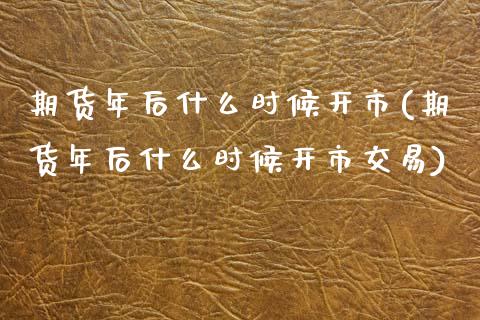 期货年后什么时候开市(期
货年后什么时候开市交易)